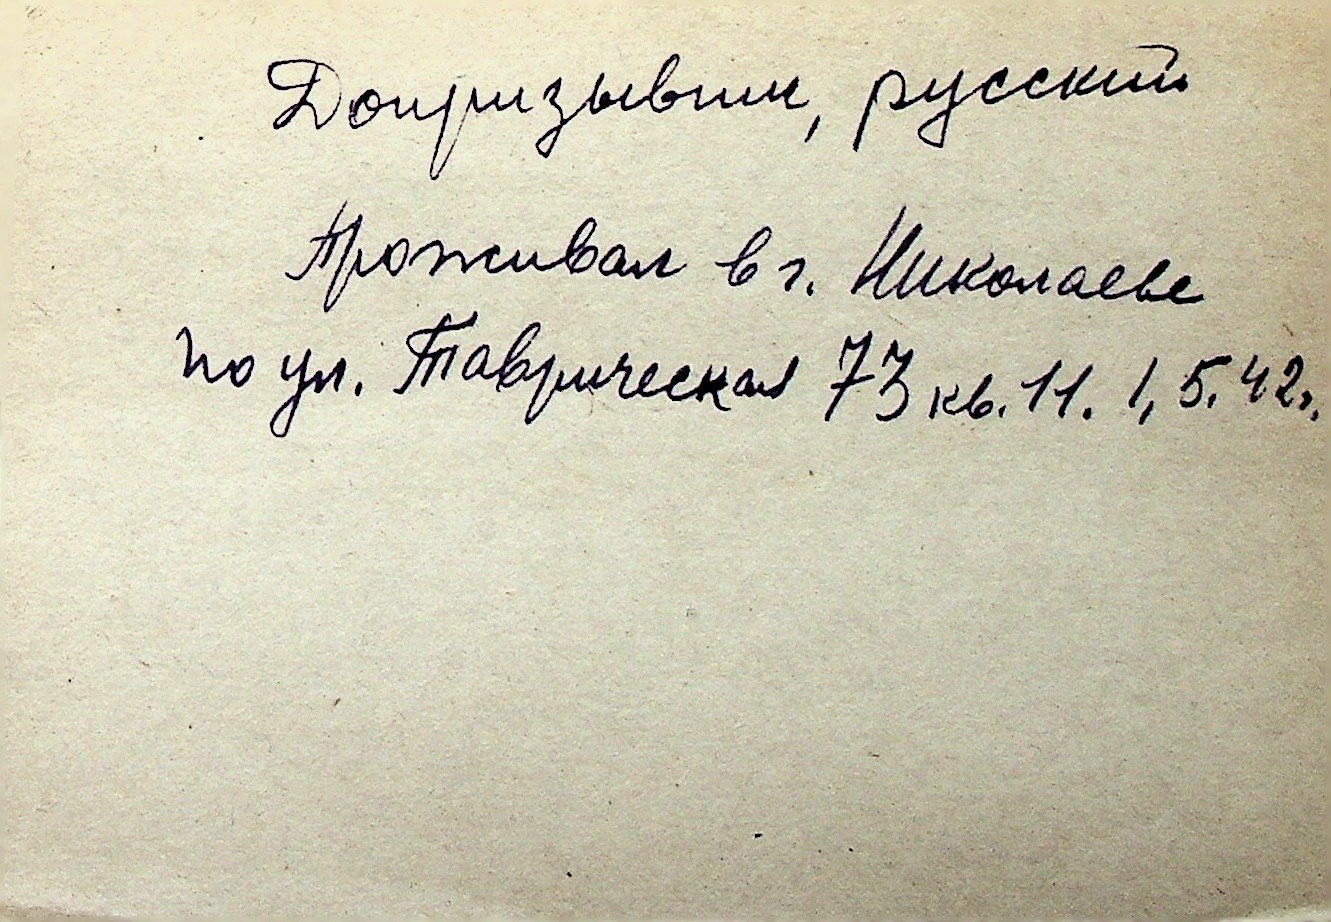 Допризывник, русский
Проживал в г. Николаеве
по ул. Таврическая 73 кв. 11. 1, 5. 42 г.